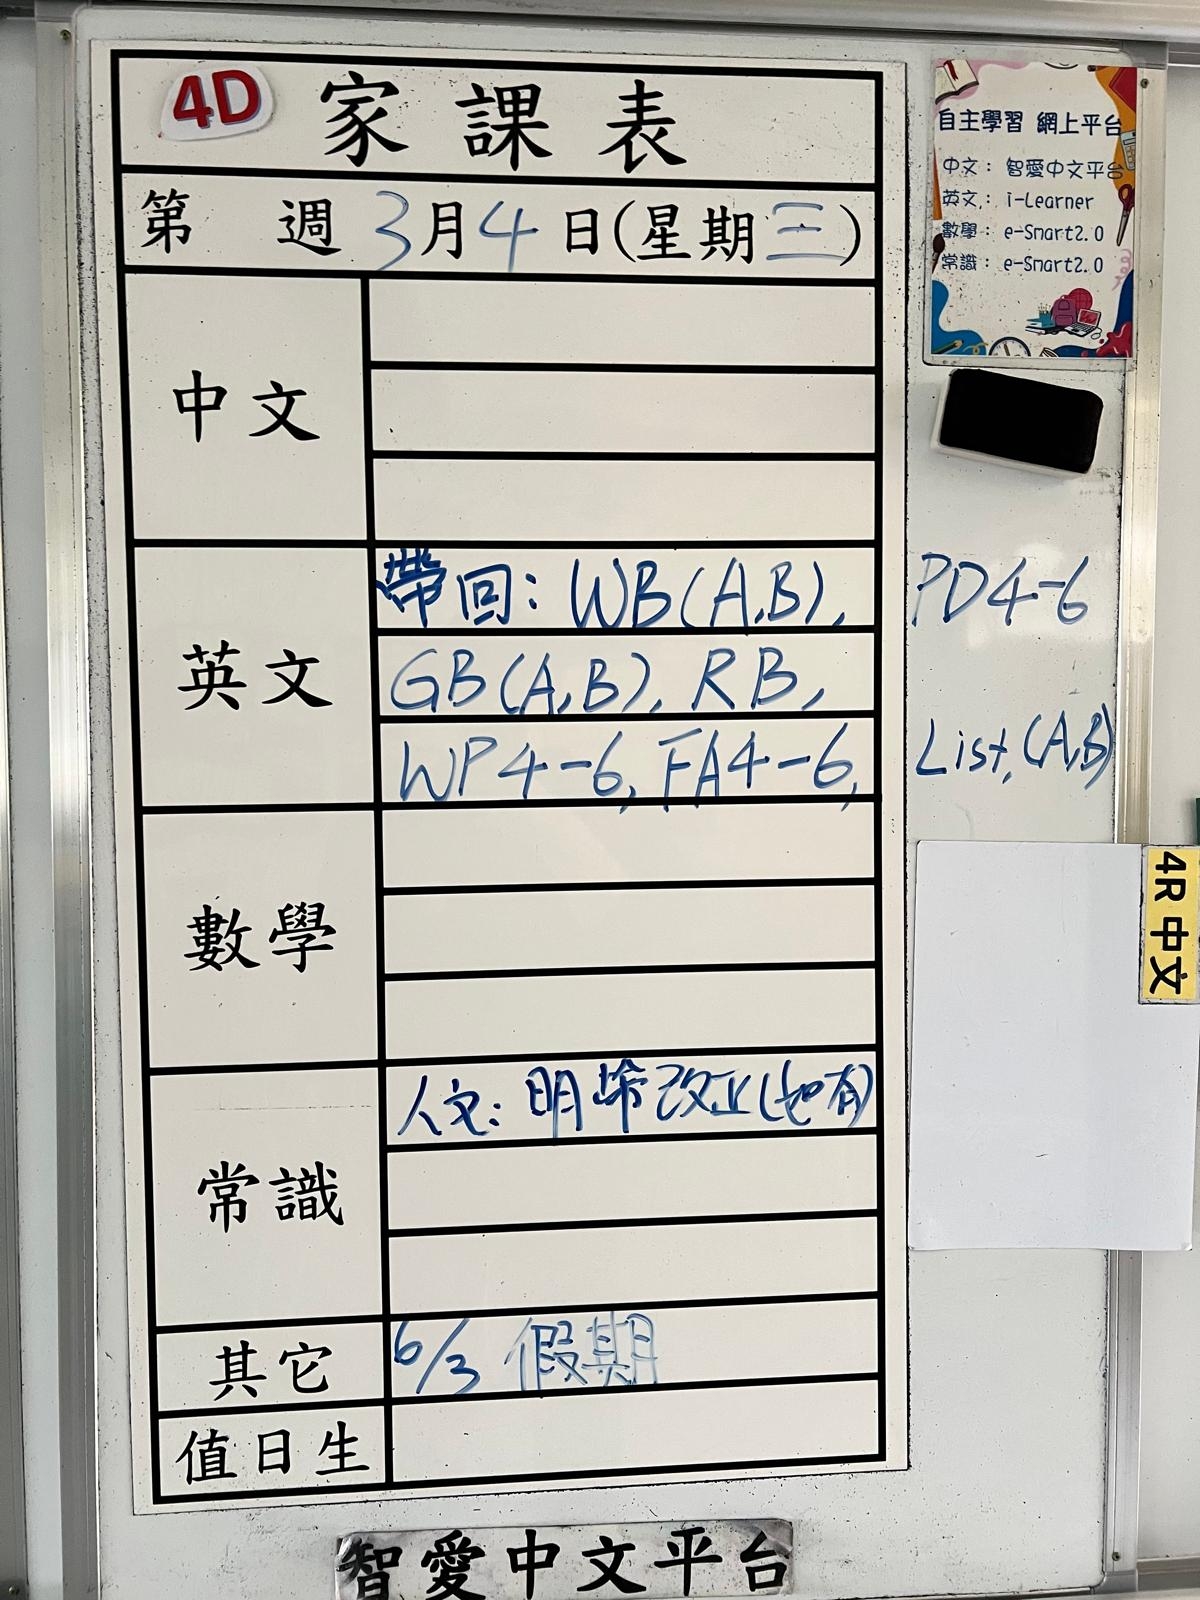 4D 家課表
第 週 3月4日(星期三)
中文
英文
帶回: WB(A,B), PD4-6
GB(A,B), RB,
WP4-6, FA4-6, List,(A,B)
數學
常識
人文: 明 改正(也有)
其它
6/3 假期
值日生
智愛中文平台
自主學習 網上平台
中文: 智愛中文平台
英文: i-Learner
數學: e-Smart2.0
常識: e-Smart2.0
4R 中文